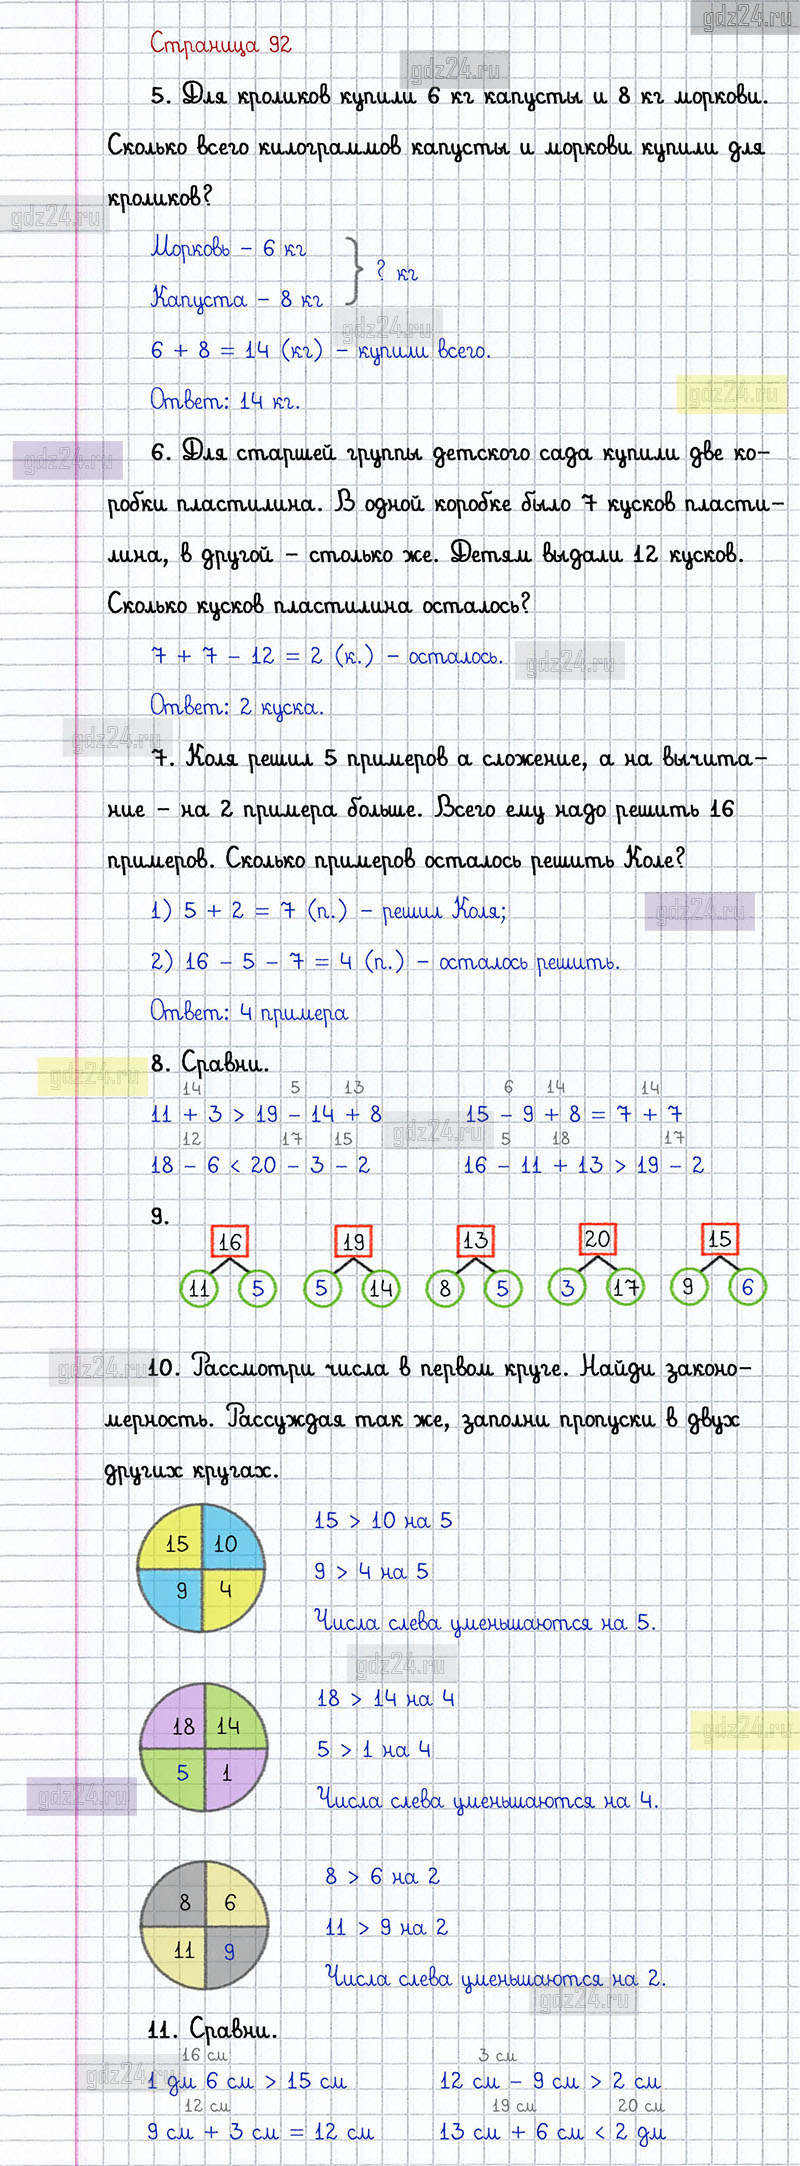 gdz24.ru
Страница 92
gdz24.ru
5. Для кроликов купили 6 кг капусты и 8 кг моркови.
Сколько всего килограммов капусты и моркови купили для
кроликов?
gdz24.ru
Морковь – 6 кг
? кг
Капуста – 8 кг
gdz24.ru
6 + 8 = 14 (кг) – купили всего.
gdz24.ru
Ответ: 14 кг.
gdz24.ru
6. Для старшей группы детского сада купили две ко-
робки пластилина. В одной коробке было 7 кусков пласти-
лина, в другой – столько же. Детям выдали 12 кусков.
Сколько кусков пластилина осталось?
7 + 7 – 12 = 2 (к.) – осталось.
gdz24.ru
Ответ: 2 куска.
gdz24.ru
7. Коля решил 5 примеров а сложение, а на вычита-
ние – на 2 примера больше. Всего ему надо решить 16
примеров. Сколько примеров осталось решить Коле?
1) 5 + 2 = 7 (п.) – решил Коля;
gdz24.ru
2) 16 – 5 – 7 = 4 (п.) – осталось решить.
Ответ: 4 примера
8. Сравни.
gdz24.ru
14 5 13 6 14 14
11 + 3 > 19 – 14 + 8 15 – 9 + 8 = 7 + 7
gdz24.ru
12 17 15 5 18 17
18 – 6 < 20 – 3 – 2 16 – 11 + 13 > 19 – 2
9.
16 19 13 20 15
11 5 5 14 8 5 3 17 9 6
gdz24.ru
10. Рассмотри числа в первом круге. Найди законо-
мерность. Рассуждая так же, заполни пропуски в двух
других кругах.
15 > 10 на 5
15 10
9 > 4 на 5
9 4
Числа слева уменьшаются на 5.
gdz24.ru
18 > 14 на 4
18 14
gdz24.ru
5 > 1 на 4
5 1
Числа слева уменьшаются на 4.
gdz24.ru
8 > 6 на 2
8 6
11 > 9 на 2
11 9
Числа слева уменьшаются на 2.
gdz24.ru
11. Сравни.
16 см 3 см
gdz24.ru
1 дм 6 см > 15 см 12 см – 9 см > 2 см
12 см 19 см 20 см
9 см + 3 см = 12 см 13 см + 6 см < 2 дм